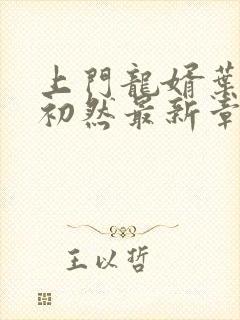 上門龍婿葉
初然最新章
王以哲